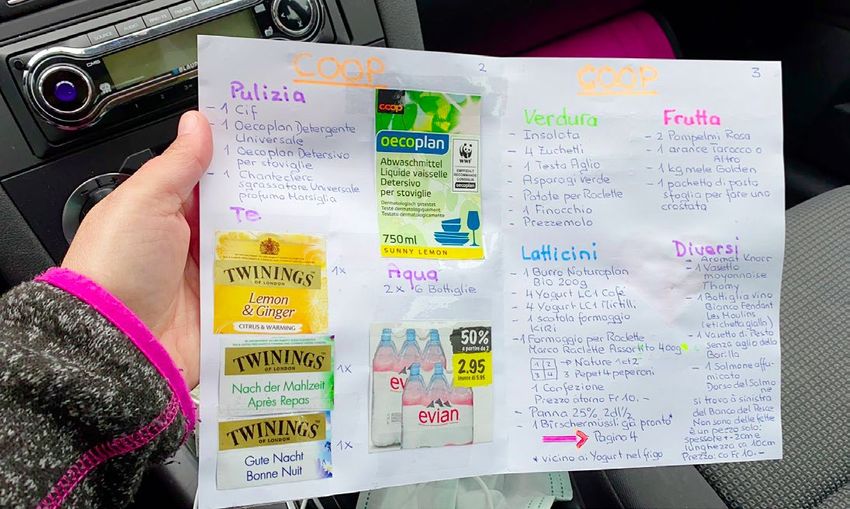 COOP
2
Pulizia
- 1 Cif
- 1 Oecoplan Detergente
Universale
- 1 Oecoplan Detersivo
per stoviglie
- 1 Chanteclere
sgrassatore Universale
profumo Marsiglia
Te
TWININGS
OF LONDON
Lemon
& Ginger
CITRUS & WARMING
1x
TWININGS
OF LONDON
Nach der Mahlzeit
Après Repas
1x
TWININGS
OF LONDON
Gute Nacht
Bonne Nuit
1x
coop
oecoplan
WWF
Abwaschmittel
Liquide vaisselle
Detersivo
per stoviglie
Dermatologisch getestet
Testé dermatologiquement
Testato dermatologicamente
750ml
SUNNY LEMON
Aqua
2 x 6 Bottiglie
50%
a partire da 2
2.95
invece di 5.95
evian
COOP
3
Verdura
- Insalata
- 4 Zuchetti
- 1 Testa Aglio
- Asparagi Verde
- Patate per Raclette
- 1 Finocchio
- Prezzemolo
Frutta
- 2 Pompelmi Rosa
- 1 arance Tarocco o
Altro
- 1 kg mele Golden
- 1 pachetto di pasta
sfoglia per fare una
crostata
Latticini
- 1 Burro Naturaplan
Bio 200g
- 4 Yogurt LC1 Café
- 4 Yogurt LC1 Mirtilli
- 1 scatola formaggio
KiRi
- 1 Formaggio per Raclette
Marca Raclette Assortito 400g
1 2
3 4
→ Nature 1 et 2
3 Pepe t 4 peperoni
1 Confezione
Prezzo atorno Fr 10.-
- Panna 25% 2dl 1/2
- 1 Birschermüssli già pronto*
Pagina 4
* vicino ai Yogurt nel frigo
Diversi
- Aromat Knorr
- 1 Vasetto
mayonnaise
Thomy
- 1 Bottiglia vino
Bianco Fendant
Les Moulins
(etichetta gialla)
- 1 Vasetto di Pesto
senza aglio della
Barilla
- 1 Salmone affu-
micato
Dorso del Salmo
ne
si trova à sinistra
del Banco del Pesce
Non sono delle fette
è un pezzo solo:
spessore +- 2cm e
lunghezza ca 10cm
Prezzo: ca Fr 10.-